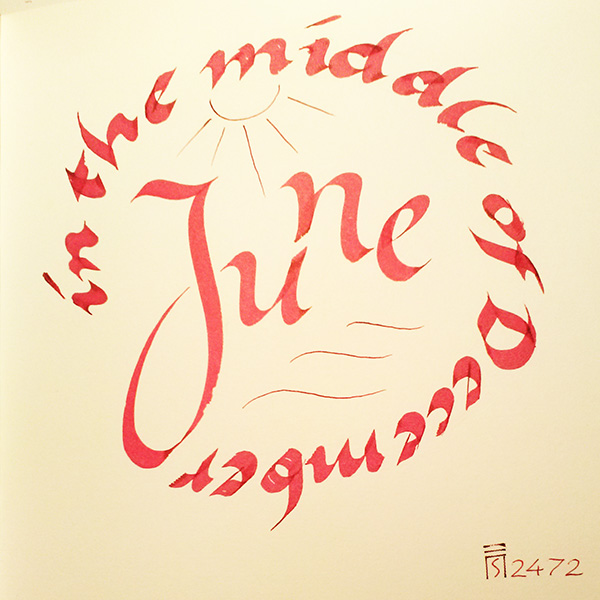 June
in the middle of December
2472